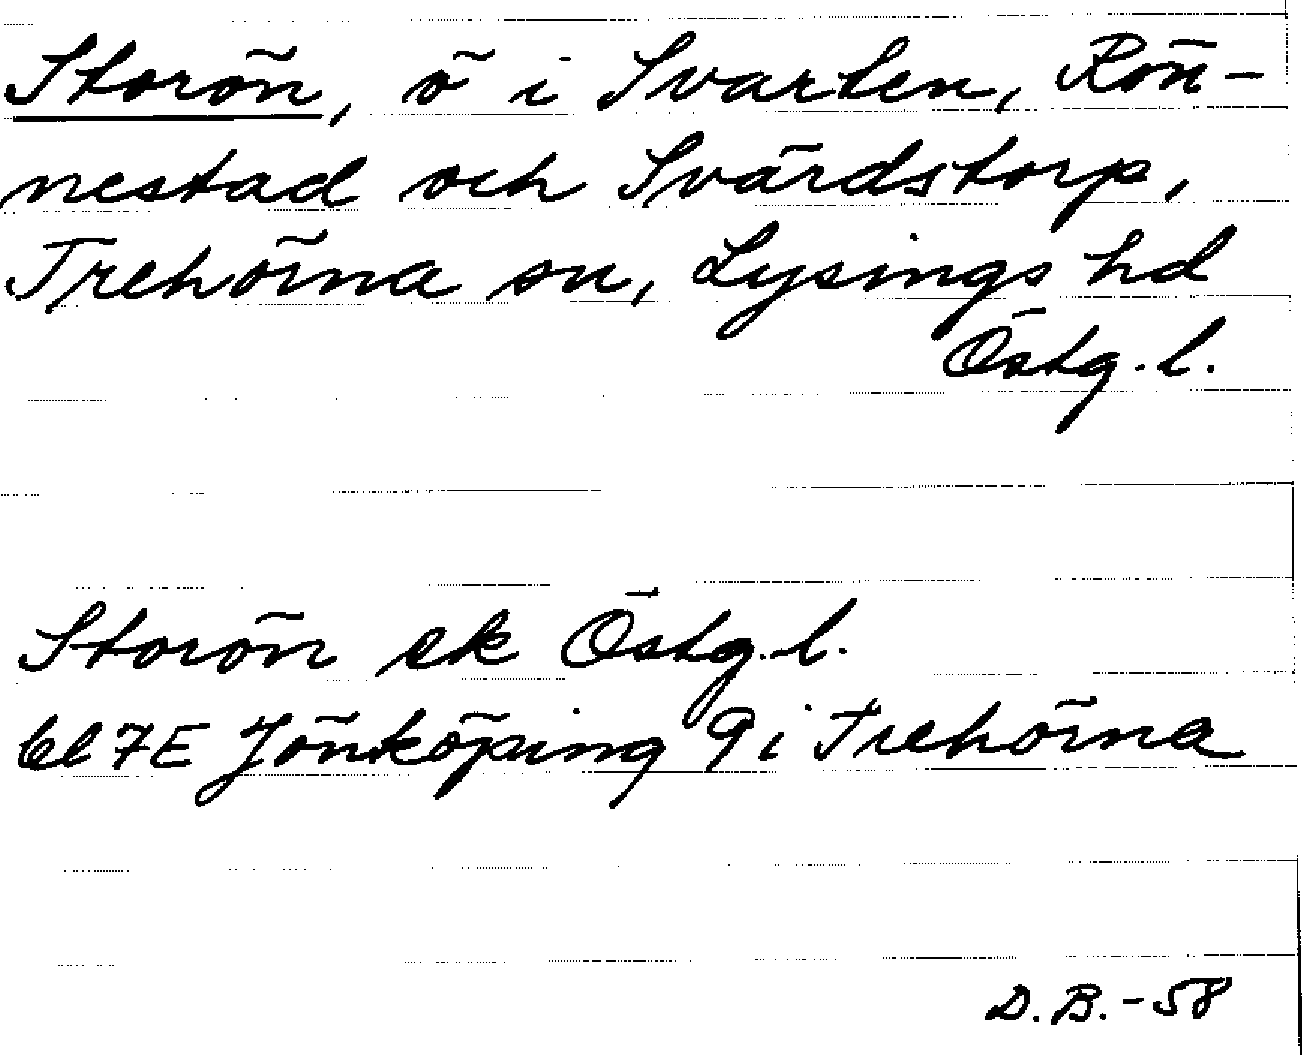 Storön, ö i Svarten, Rön-
nestad och Svärdstorp,
Trehörna sn, Lysings hd
Östg. l.
Storön ek Östg. l.
bl 7E Jönköping 9i Trehörna
D. B. - 58